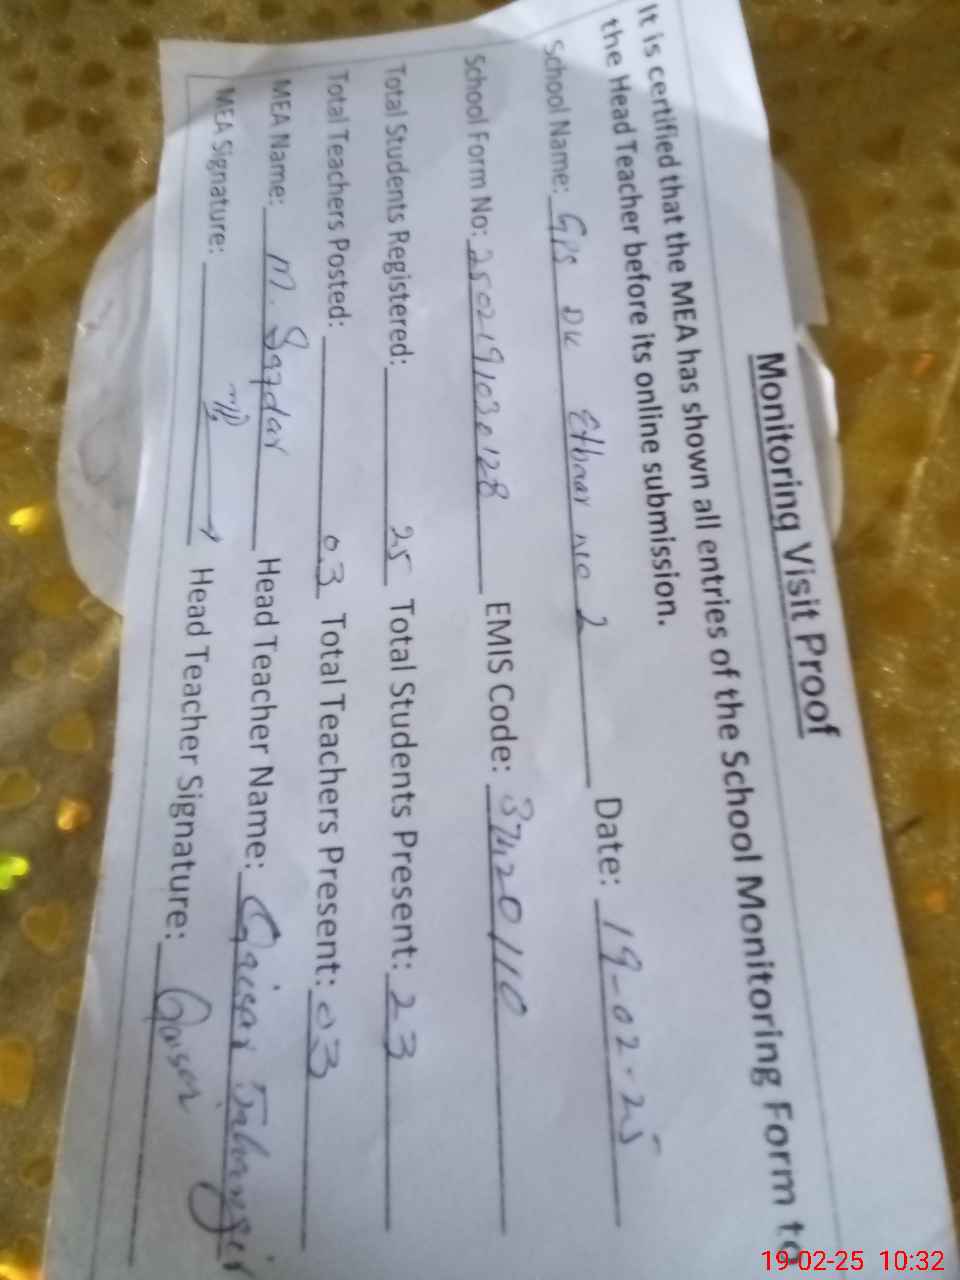 Monitoring Visit Proof
It is certified that the MEA has shown all entries of the School Monitoring Form to
the Head Teacher before its online submission.
School Name: GPS DK Etbaar No 2 Date: 19-02-25
School Form No: 2502191030128 EMIS Code: 37420110
Total Students Registered: 25 Total Students Present: 23
Total Teachers Posted: 03 Total Teachers Present: 03
MEA Name: M. Safdar Head Teacher Name: Qaisar Jahangir
MEA Signature: Head Teacher Signature: Qaiser
19-02-25 10:32